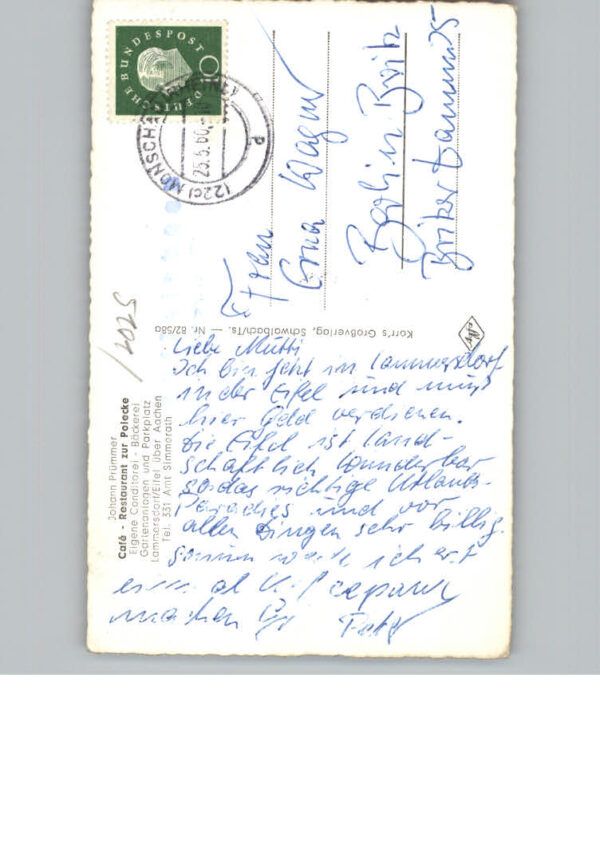 DEUTSCHE BUNDESPOST
(22c) MONSCHAU
25.6.60
Frau
Erna Wagner
Berlin Britz
Korr's Großverlag, Schwalbach/Ts. — Nr. 82/58a
5201/
Johann Prümmer
Café - Restaurant zur Paiecke
Eigene Conditorei - Bäckerei
Gartenanlagen und Parkplatz
Lammersdorf/Eifel über Aachen
Tel. 331 Amt Simmerath
Liebe Mutti
Ich bin jetzt in Lammersdorf
in der Eifel und muß
hier Geld verdienen.
Die Eifel ist land-
schaftlich wunderbar
so das richtige Urlaubs-
Paradies und vor
allen Dingen sehr billig.
ich erst
machen
Peter